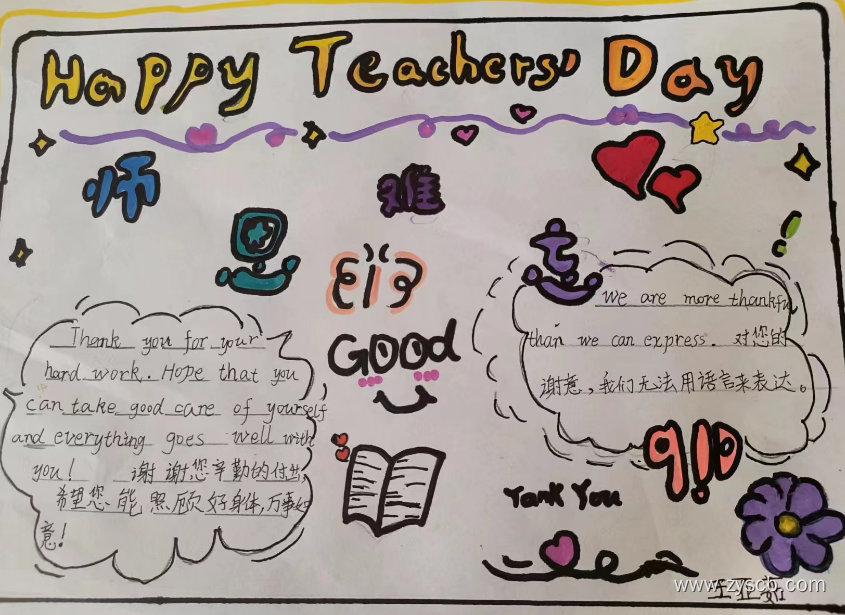 Happy Teachers' Day
师 恩 难 忘
Thank you for your
hard work. Hope that you
can take good care of yourself
and everything goes well with
you! 谢谢您辛勤的付出,
希望您能照顾好身体,万事如
意!
Good
we are more thankful
than we can express. 对您的
谢意,我们无法用语言来表达。
910
Tank You
www.zyscb.com